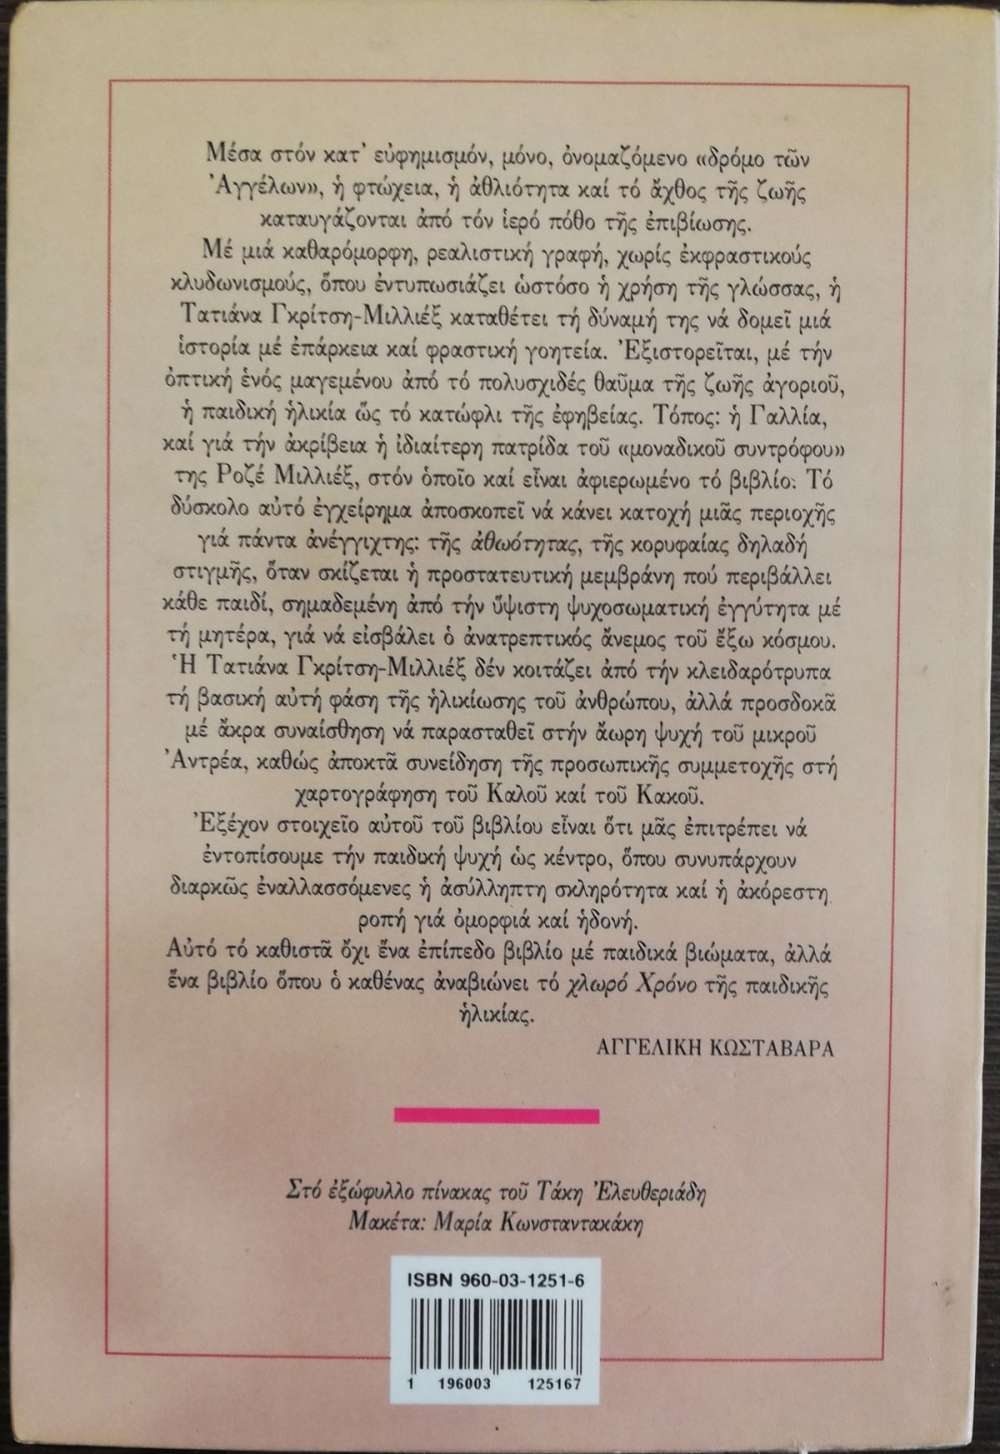 Μέσα στόν κατ' εὐφημισμόν, μόνο, ὀνομαζόμενο «δρόμο τῶν
Ἀγγέλων», ἡ φτώχεια, ἡ ἀθλιότητα καί τό ἄχθος τῆς ζωῆς
καταυγάζονται ἀπό τόν ἱερό πόθο τῆς ἐπιβίωσης.
Μέ μιά καθαρόμορφη, ρεαλιστική γραφή, χωρίς ἐκφραστικούς
κλυδωνισμούς, ὅπου ἐντυπωσιάζει ὡστόσο ἡ χρήση τῆς γλώσσας, ἡ
Τατιάνα Γκρίτση-Μιλλιέξ καταθέτει τή δύναμή της νά δομεῖ μιά
ἱστορία μέ ἐπάρκεια καί φραστική γοητεία. Ἐξιστορεῖται, μέ τήν
ὀπτική ἑνός μαγεμένου ἀπό τό πολυσχιδές θαῦμα τῆς ζωῆς ἀγοριοῦ,
ἡ παιδική ἡλικία ὥς τό κατώφλι τῆς ἐφηβείας. Τόπος: ἡ Γαλλία,
καί γιά τήν ἀκρίβεια ἡ ἰδιαίτερη πατρίδα τοῦ «μοναδικοῦ συντρόφου»
της Ροζέ Μιλλιέξ, στόν ὁποῖο καί εἶναι ἀφιερωμένο τό βιβλίο. Τό
δύσκολο αὐτό ἐγχείρημα ἀποσκοπεῖ νά κάνει κατοχή μιᾶς περιοχῆς
γιά πάντα ἀνέγγιχτης: τῆς ἀθωότητας, τῆς κορυφαίας δηλαδή
στιγμῆς, ὅταν σκίζεται ἡ προστατευτική μεμβράνη πού περιβάλλει
κάθε παιδί, σημαδεμένη ἀπό τήν ὕψιστη ψυχοσωματική ἐγγύτητα μέ
τή μητέρα, γιά νά εἰσβάλει ὁ ἀνατρεπτικός ἄνεμος τοῦ ἔξω κόσμου.
Ἡ Τατιάνα Γκρίτση-Μιλλιέξ δέν κοιτάζει ἀπό τήν κλειδαρότρυπα
τή βασική αὐτή φάση τῆς ἡλικίωσης τοῦ ἀνθρώπου, ἀλλά προσδοκᾶ
μέ ἄκρα συναίσθηση νά παρασταθεῖ στήν ἄωρη ψυχή τοῦ μικροῦ
Ἀντρέα, καθώς ἀποκτᾶ συνείδηση τῆς προσωπικῆς συμμετοχῆς στή
χαρτογράφηση τοῦ Καλοῦ καί τοῦ Κακοῦ.
Ἐξέχον στοιχεῖο αὐτοῦ τοῦ βιβλίου εἶναι ὅτι μᾶς ἐπιτρέπει νά
ἐντοπίσουμε τήν παιδική ψυχή ὡς κέντρο, ὅπου συνυπάρχουν
διαρκῶς ἐναλλασσόμενες ἡ ἀσύλληπτη σκληρότητα καί ἡ ἀκόρεστη
ροπή γιά ὀμορφιά καί ἡδονή.
Αὐτό τό καθιστᾶ ὄχι ἕνα ἐπίπεδο βιβλίο μέ παιδικά βιώματα, ἀλλά
ἕνα βιβλίο ὅπου ὁ καθένας ἀναβιώνει τό χλωρό Χρόνο τῆς παιδικῆς
ἡλικίας.
ΑΓΓΕΛΙΚΗ ΚΩΣΤΑΒΑΡΑ
Στό ἐξώφυλλο πίνακας τοῦ Τάκη Ἐλευθεριάδη
Μακέτα: Μαρία Κωνσταντακάκη
ISBN 960-03-1251-6
1 196003 125167